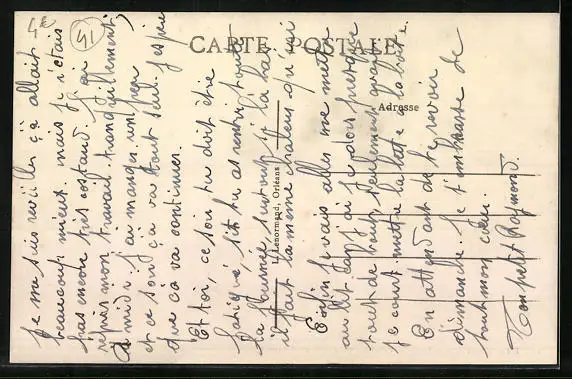 4e
41
CARTE POSTALE
Adresse
L. Lenormand, Orléans
Je me suis réveillé ça allait
beaucoup mieux. mais je n'étais
pas encore très costaud. J'ai
repris mon travail tranquillement.
A midi j'ai mangé un peu
et ce soir ça va tout seul. J'espère
que ça va continuer.
Et toi, ce soir tu dois être
fatiguée, si tu as rentré toute
la journée surtout si là bas
il fait la même chaleur qu'ici
Enfin je vais aller me mettre
au lit car j'ai le dos presque
tout de tout seulement avant
je cours mettre ta lettre à la boîte.
En attendant de te revoir
dimanche. Je t'embrasse de
tout mon cœur.
Ton petit Raymond.